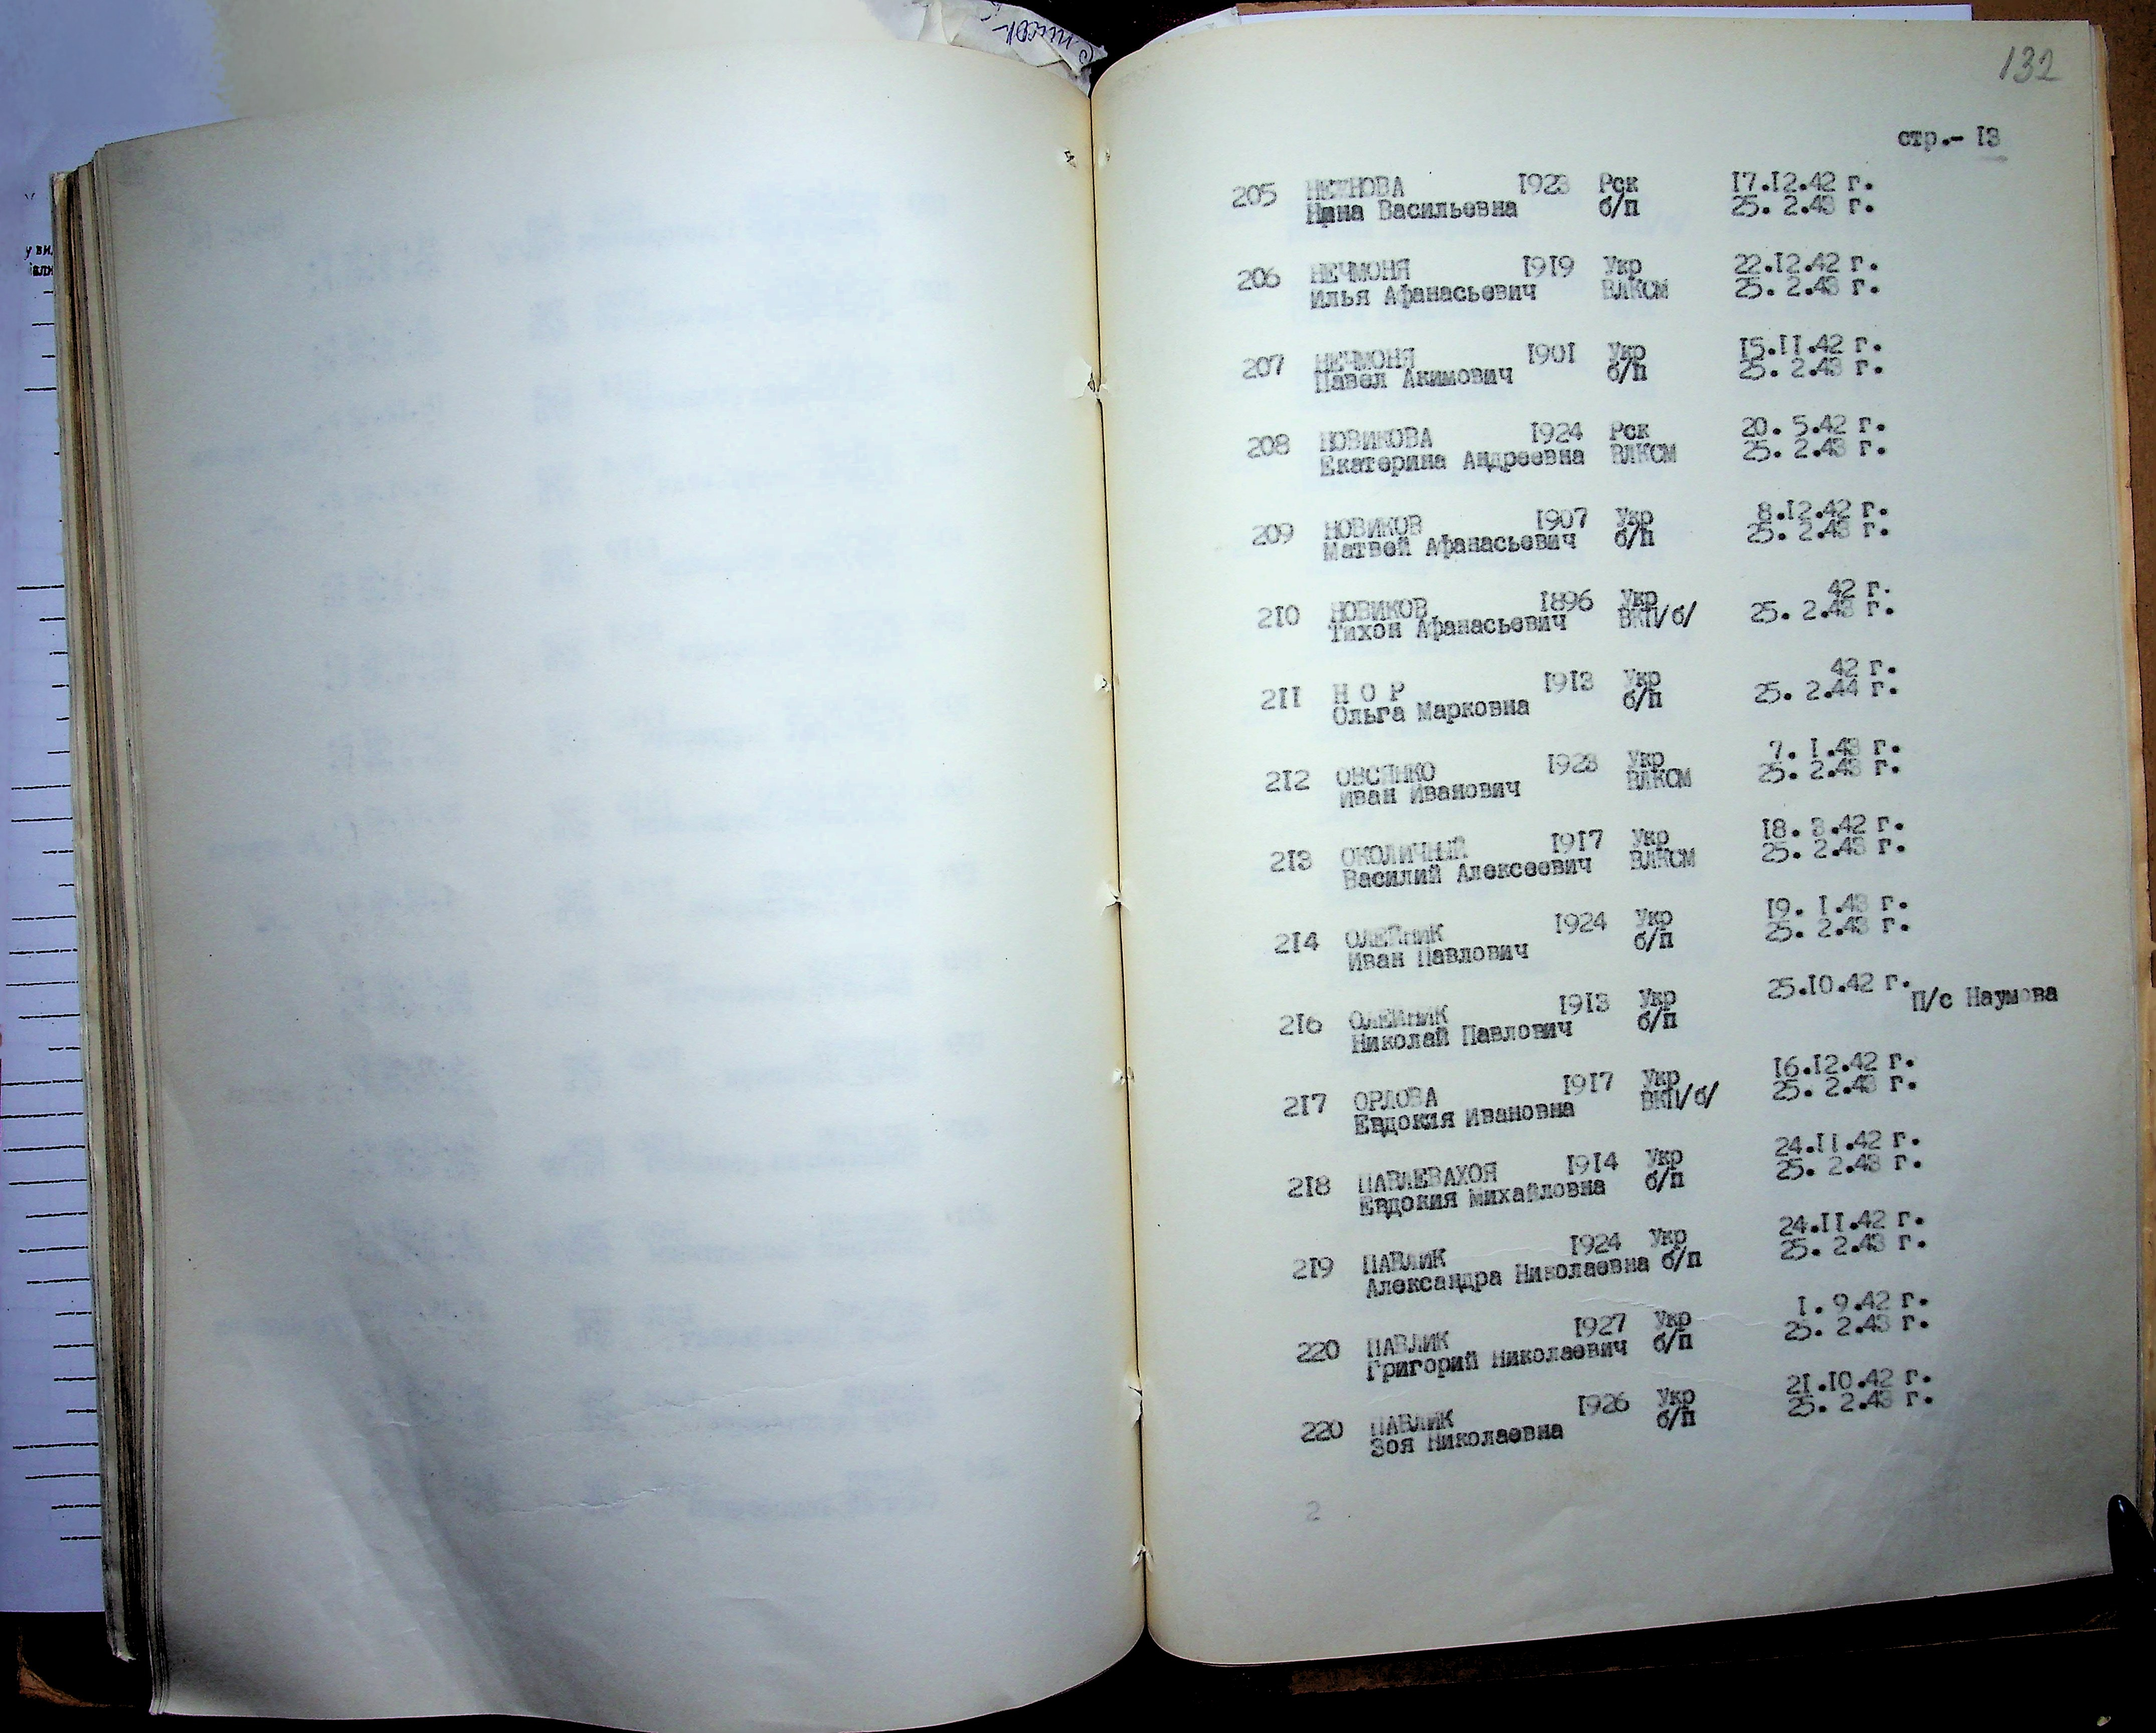 132
стр.- I3
205 НЕЖНОВА I923 Рск I7.I2.42 г.
Нина Васильевна б/п 25. 2.43 г.
206 НЕЧМОНЯ I9I9 Укр 22.I2.42 г.
Илья Афанасьевич ВЛКСМ 25. 2.43 г.
207 НЕЧМОНЯ I90I Укр I5.II.42 г.
Павел Акимович б/п 25. 2.43 г.
208 НОВИКОВА I924 Рск 20. 5.42 г.
Екатерина Андреевна ВЛКСМ 25. 2.43 г.
209 НОВИКОВ I907 Укр 8.I2.42 г.
Матвей Афанасьевич б/п 25. 2.43 г.
2I0 НОВИКОВ I896 Укр 42 г.
Тихон Афанасьевич ВКП/б/ 25. 2.43 г.
2II Н О Р I9I3 Укр 42 г.
Ольга Марковна б/п 25. 2.44 г.
2I2 ОВСЯНКО I923 Укр 7. I.43 г.
Иван Иванович ВЛКСМ 25. 2.43 г.
2I3 ОКОЛИЧНЫЙ I9I7 Укр I8. 3.42 г.
Василий Алексеевич ВЛКСМ 25. 2.43 г.
2I4 ОЛЕЙНИК I924 Укр I9. I.43 г.
Иван Павлович б/п 25. 2.43 г.
2I6 ОЛЕЙНИК I9I3 Укр 25.I0.42 г.
Николай Павлович б/п П/с Наумова
2I7 ОРЛОВА I9I7 Укр I6.I2.42 г.
Евдокия Ивановна ВКП/б/ 25. 2.43 г.
2I8 ПАВЛЕВАХОЯ I9I4 Укр 24.II.42 г.
Евдокия Михайловна б/п 25. 2.43 г.
2I9 ПАВЛИК I924 Укр 24.II.42 г.
Александра Николаевна б/п 25. 2.43 г.
220 ПАВЛИК I927 Укр I. 9.42 г.
Григорий Николаевич б/п 25. 2.43 г.
220 ПАВЛИК I926 Укр 2I.I0.42 г.
Зоя Николаевна б/п 25. 2.43 г.
2